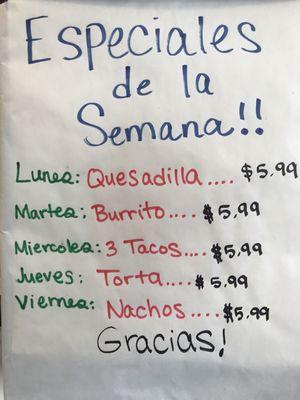 Especiales
de la
Semana!!
Lunes: Quesadilla.... $5.99
Martes: Burrito.... $5.99
Miercoles: 3 Tacos.... $5.99
Jueves: Torta... $5.99
Viernes: Nachos.... $5.99
Gracias!